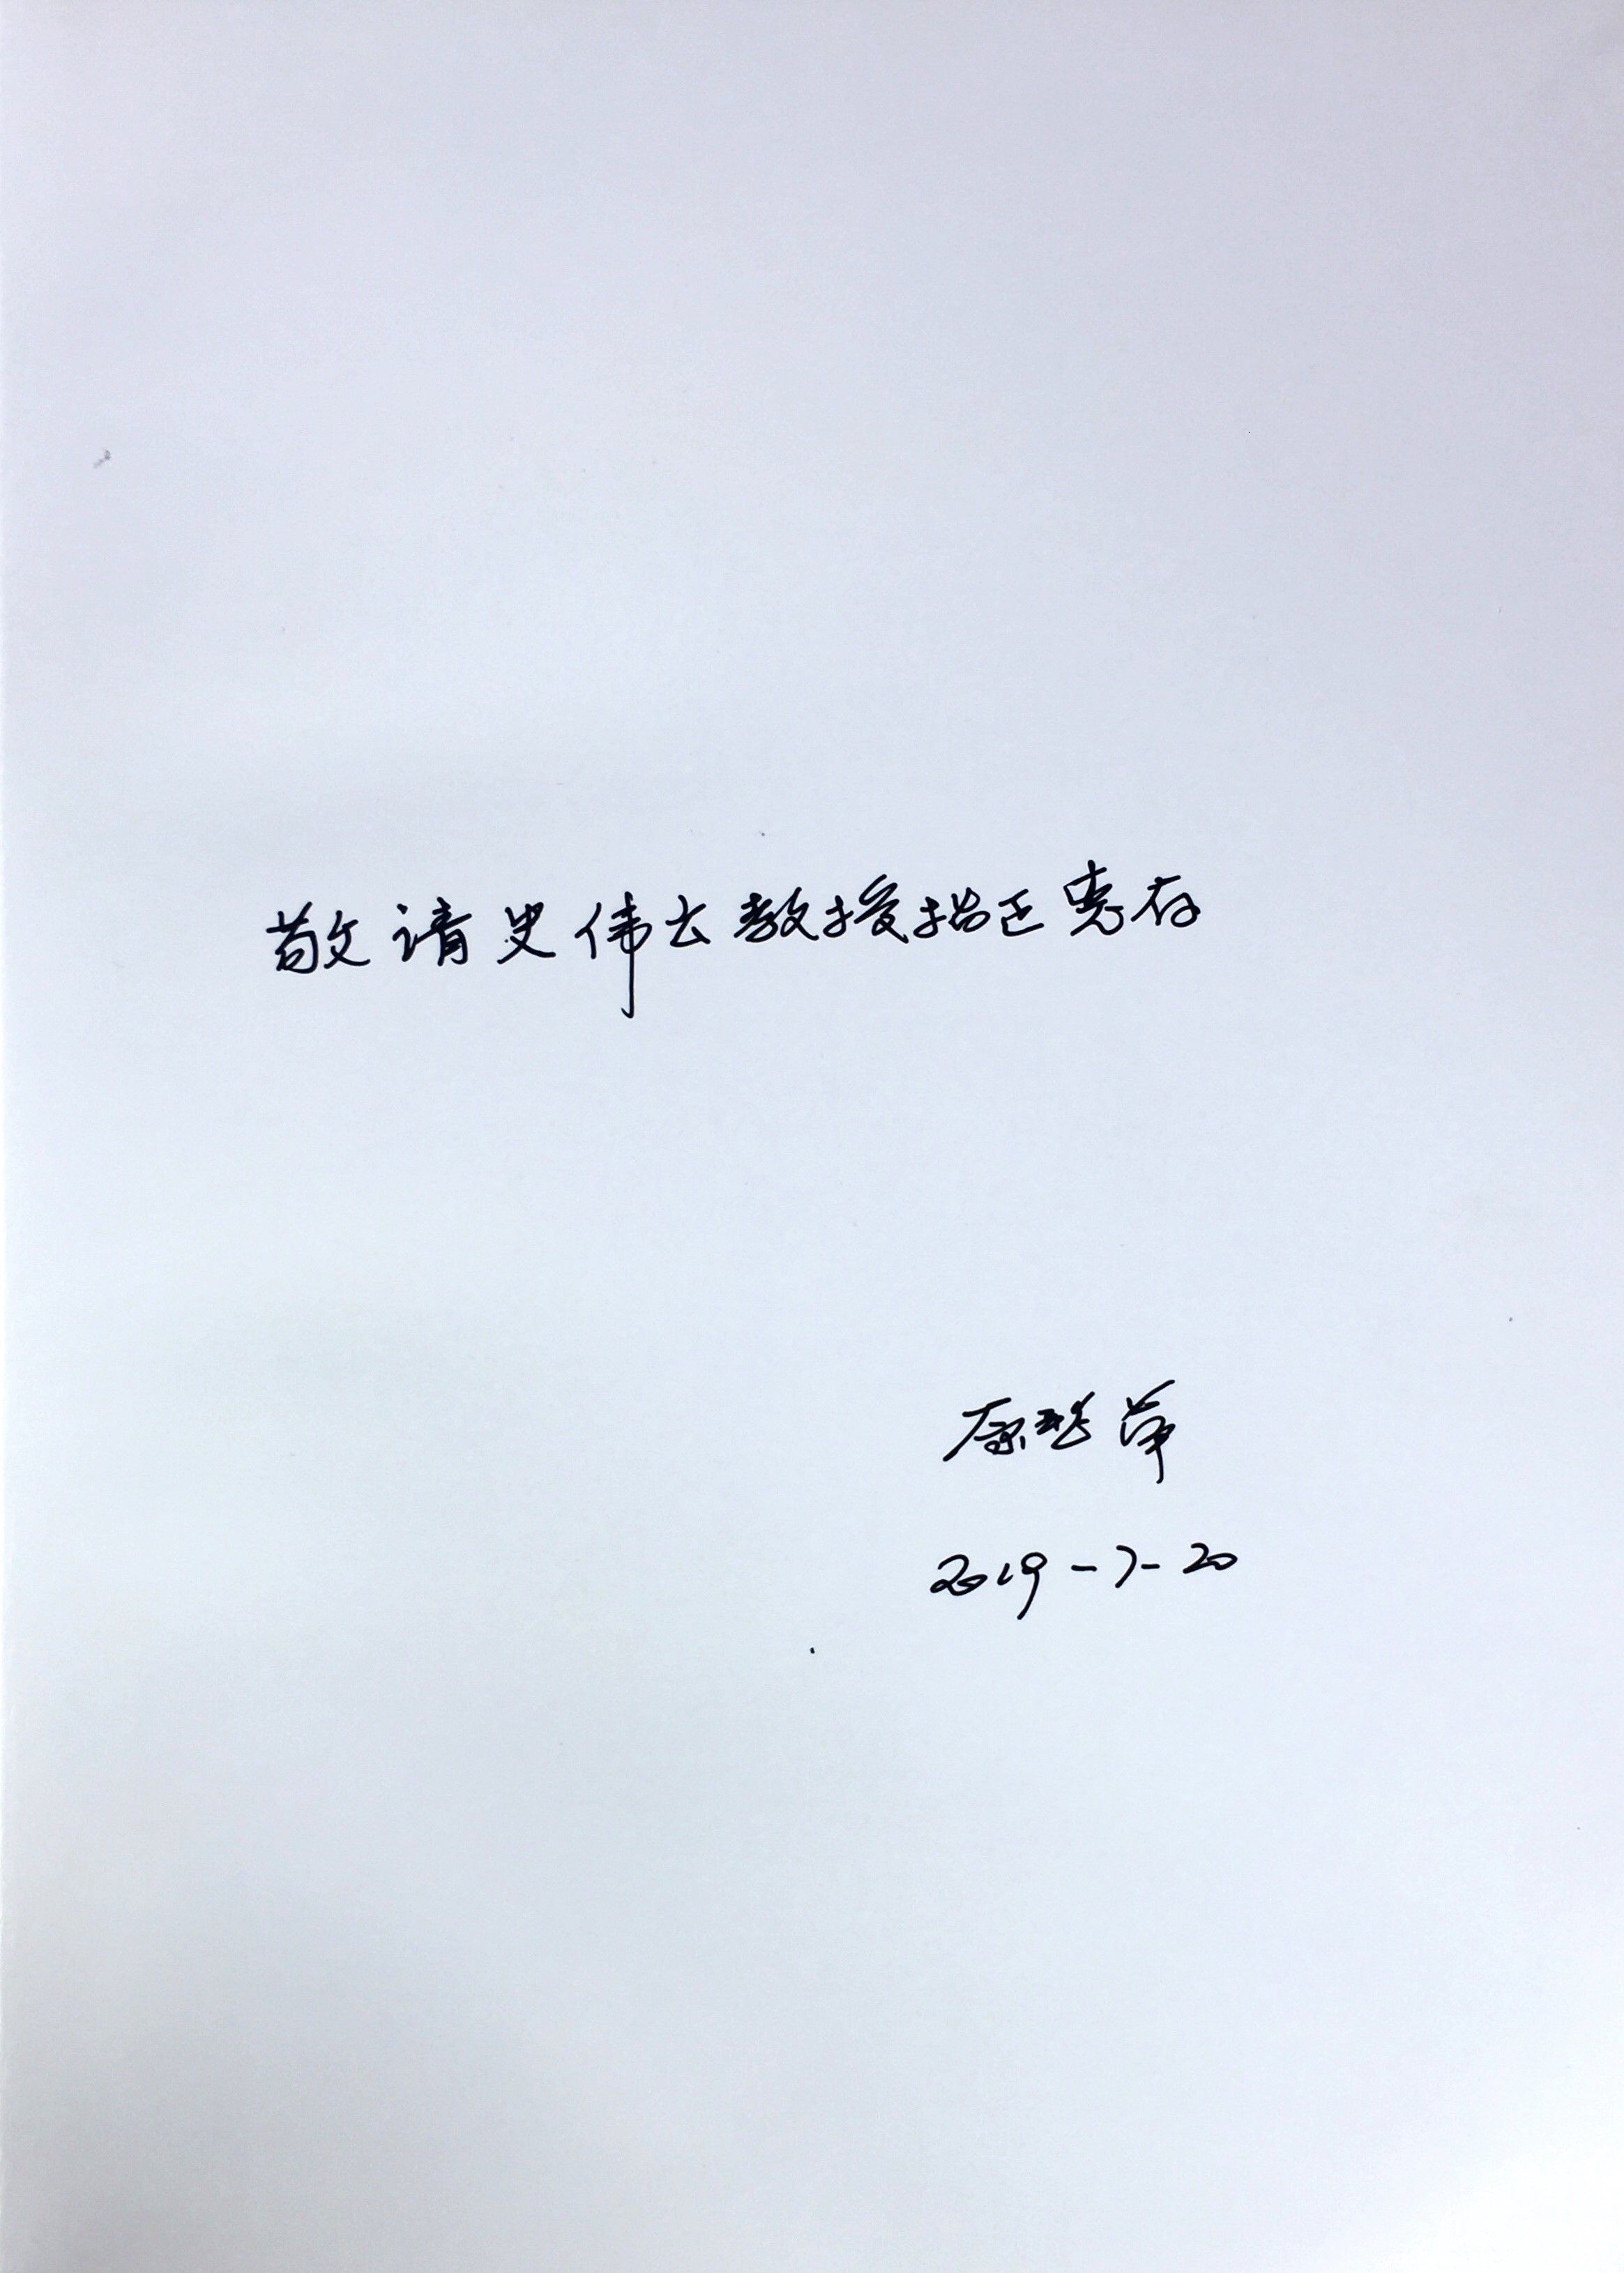 敬请史伟云教授指正惠存
原慧萍
2019-7-20